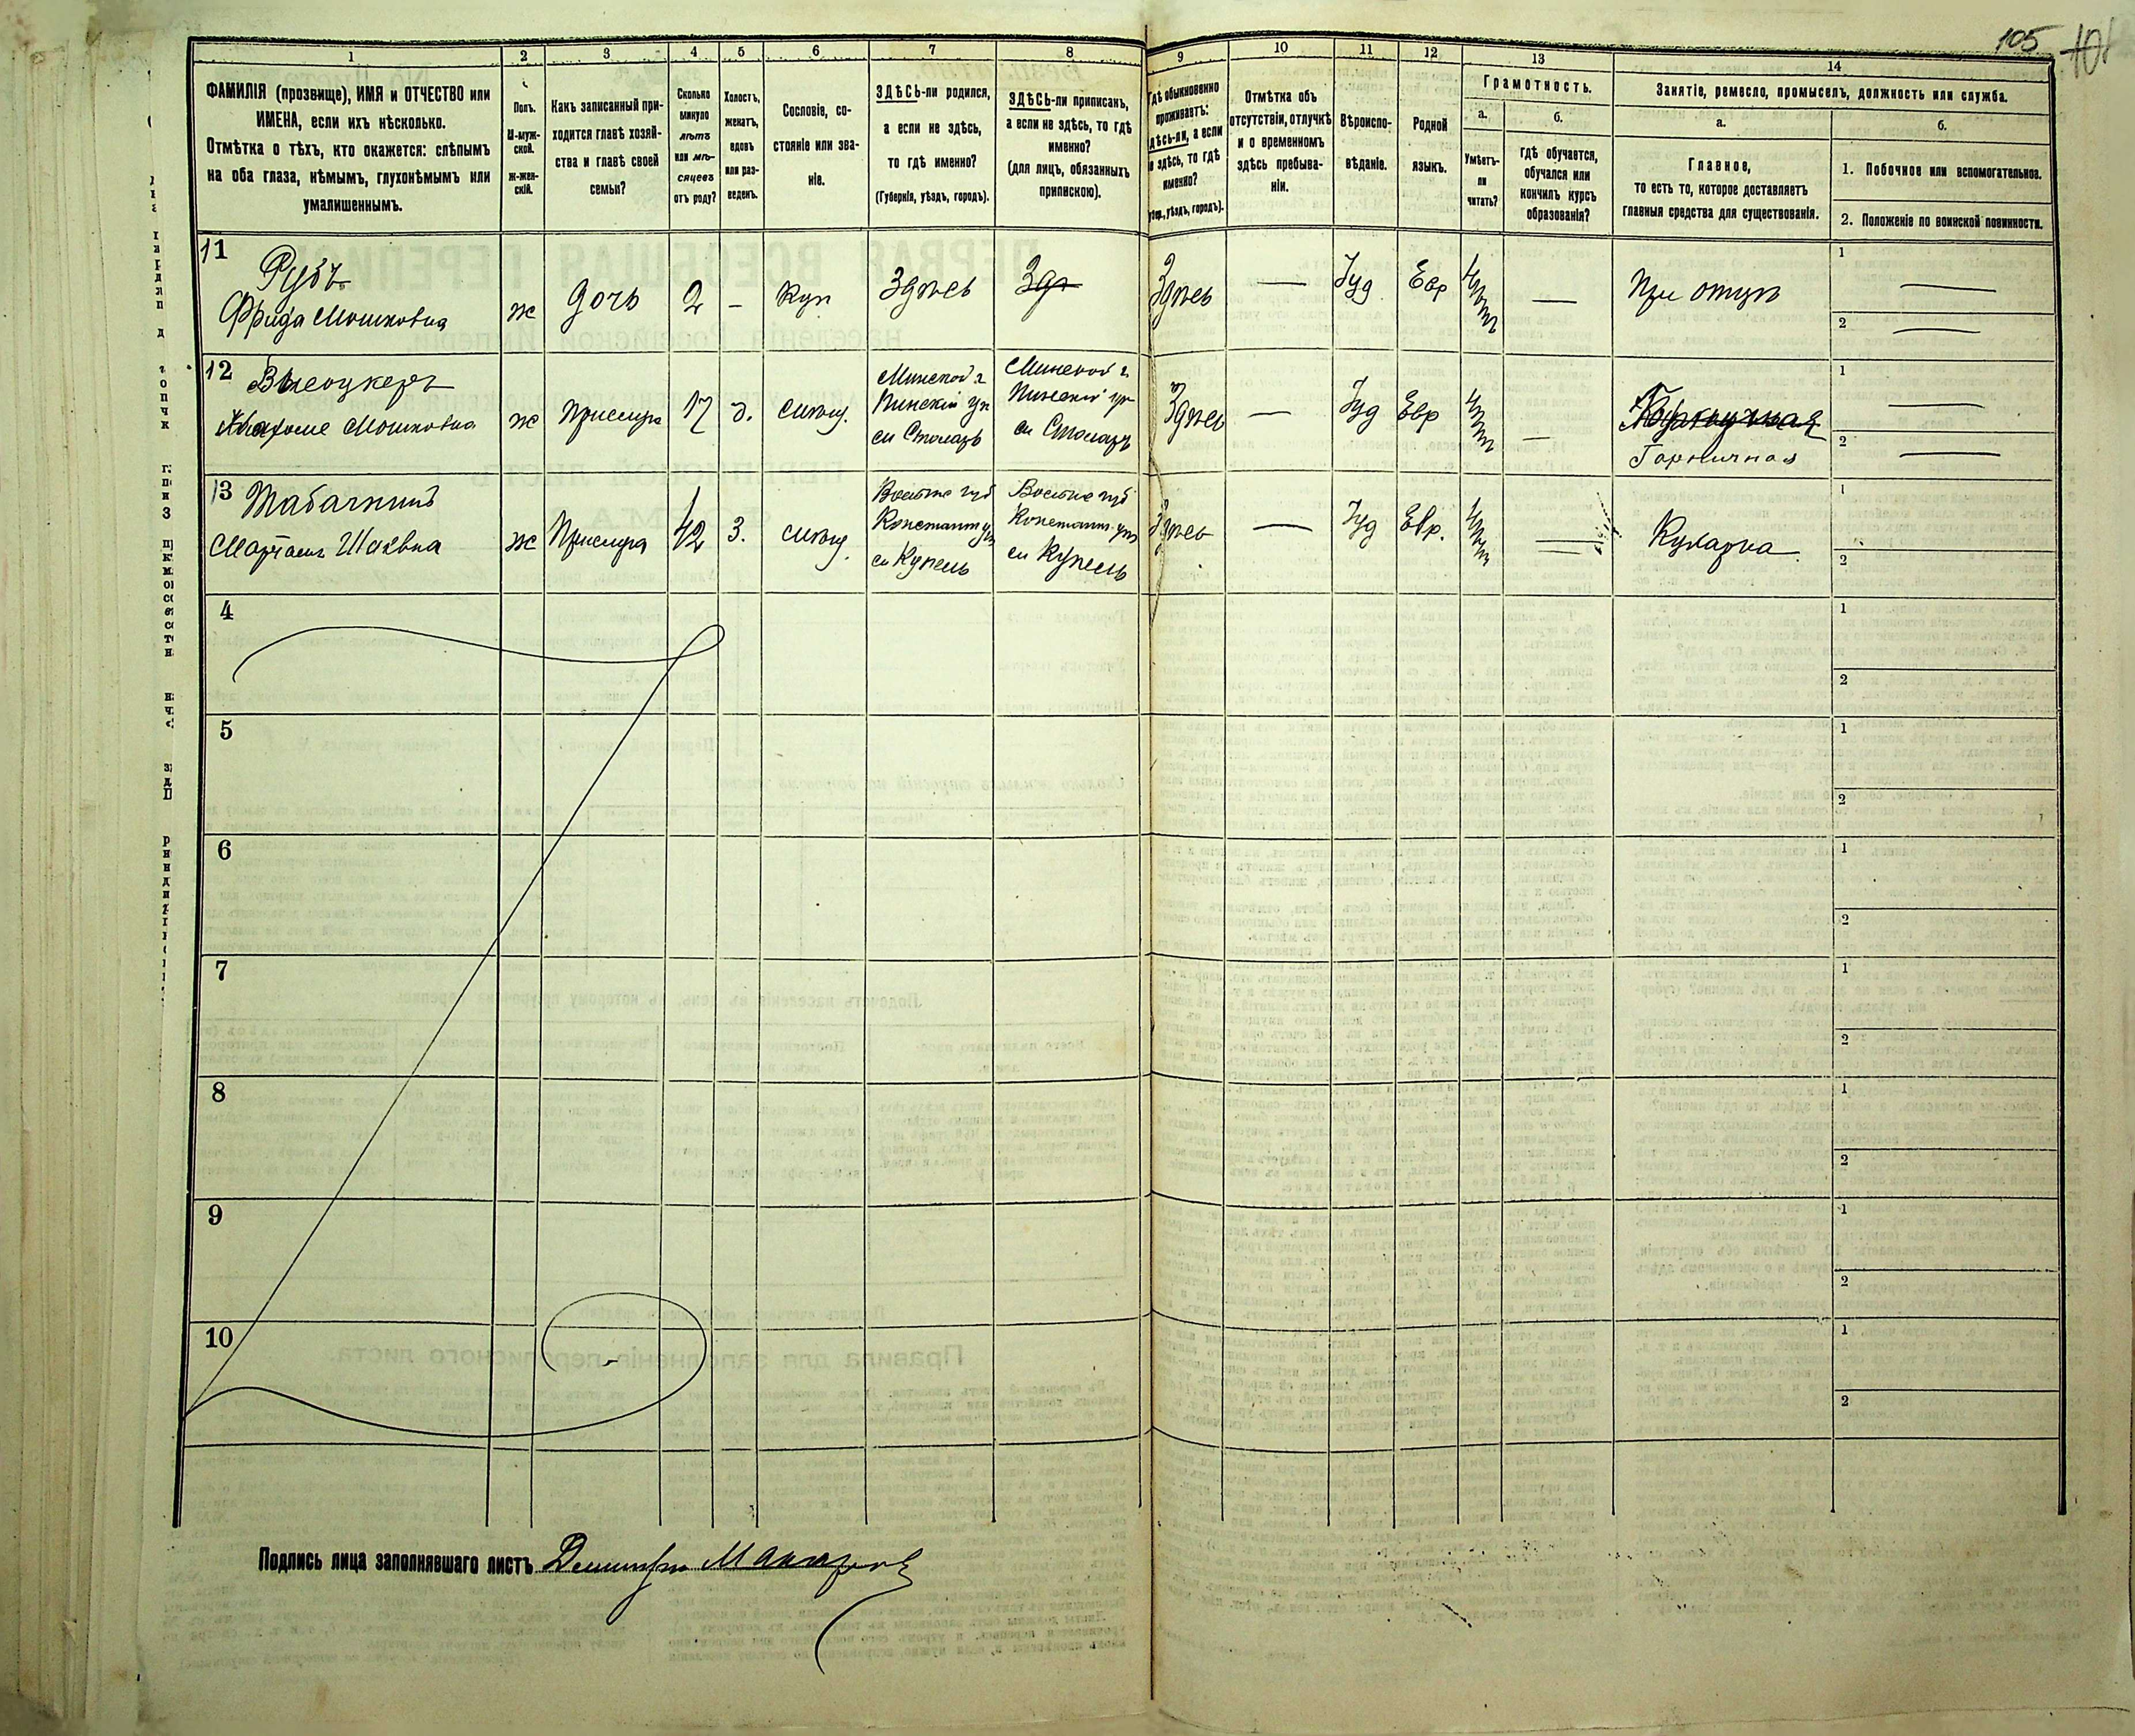 105
1
2
3
4
5
6
7
8
9
10
11
12
13
14
ФАМИЛІЯ (прозвище), ИМЯ и ОТЧЕСТВО или
ИМЕНА, если ихъ нѣсколько.
Отмѣтка о тѣхъ, кто окажется: слѣпымъ
на оба глаза, нѣмымъ, глухонѣмымъ или
умалишеннымъ.
Полъ.
М-муж-
ской.
Ж-жен-
скій.
Какъ записанный при-
ходится главѣ хозяй-
ства и главѣ своей
семьи?
Сколько
минуло
лѣтъ
или мѣ-
сяцевъ
отъ роду?
Холостъ,
женатъ,
вдовъ
или раз-
веденъ.
Сословіе, со-
стояніе или зва-
ніе.
ЗДѢСЬ-ли родился,
а если не здѣсь,
то гдѣ именно?
(Губернія, уѣздъ, городъ).
ЗДѢСЬ-ли приписанъ,
а если не здѣсь, то гдѣ
именно?
(для лицъ, обязанныхъ
припискою).
Гдѣ обыкновенно
проживаетъ:
здѣсь-ли, а если
не здѣсь, то гдѣ
именно?
(Губер., уѣздъ, городъ).
Отмѣтка объ
отсутствіи, отлучкѣ
и о временномъ
здѣсь пребыва-
ніи.
Вѣроиспо-
вѣданіе.
Родной
языкъ.
Грамотность.
а.
Умѣетъ-
ли
читать?
б.
гдѣ обучается,
обучался или
кончилъ курсъ
образованія?
Занятіе, ремесло, промыселъ, должность или служба.
а.
Главное,
то есть то, которое доставляетъ
главныя средства для существованія.
б.
1. Побочное или вспомогательное.
2. Положеніе по воинской повинности.
11
Рубъ
Фрида Мошковна
ж
дочь
2
–
Куп
Здѣсь
Здѣ
Здѣсь
—
Іуд
Евр
нѣтъ
—
При отцѣ
1
—
2
—
12
Высоцкеръ
Мошковна
ж
Прислуга
17
д.
мѣщ.
Минской г
Пинскій уѣ
Минской г
Пинскій уѣ
Здѣсь
—
Іуд
Евр
нѣтъ
—
Горничная
1
—
2
—
13
Табачникъ
ж
Прислуга
42
З.
мѣщ.
Волынс губ
Константи уѣ
м Купель
Волынс губ
Констант. уѣ
м Купель
Здѣсь
—
Іуд
Евр.
нѣтъ
—
Кухарка
1
2
4
1
2
5
1
2
6
1
2
7
1
2
8
1
2
9
1
2
10
1
2
Подпись лица заполнявшаго листъ